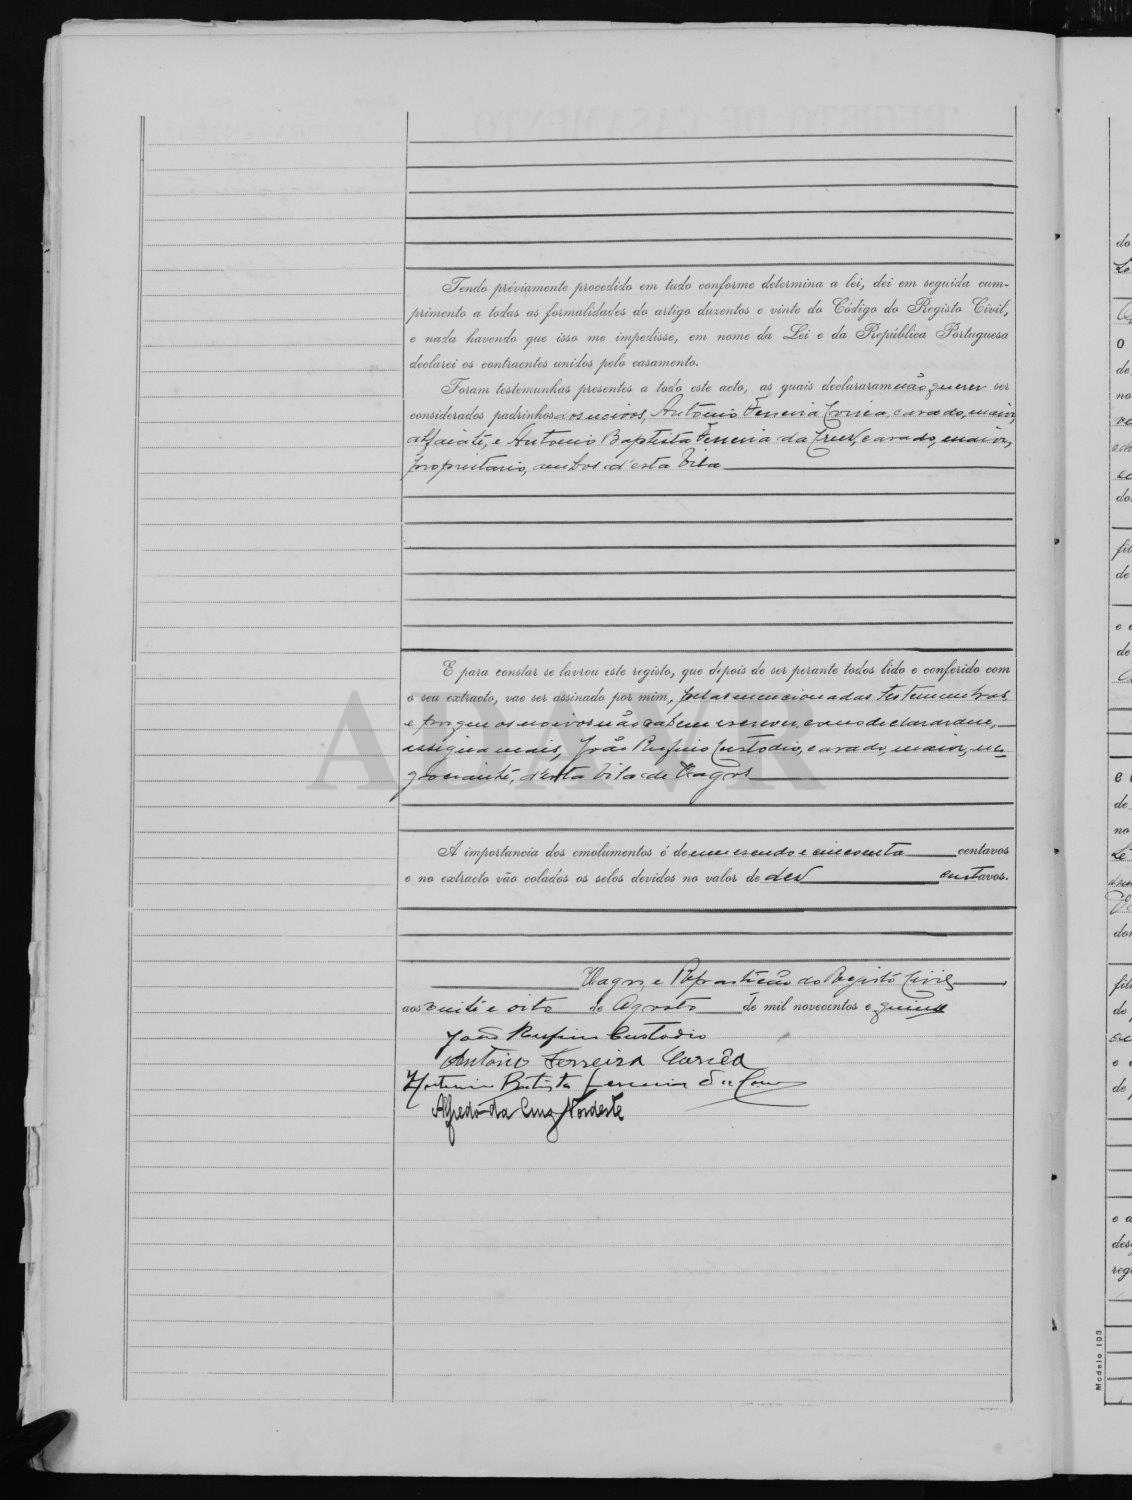 Tendo préviamente procedido em tudo conforme determina a lei, dei em seguida cum-
primento a todas as formalidades do artigo duzentos e vinte do Código do Registo Civil,
e nada havendo que isso me impedisse, em nome da Lei e da República Portuguesa
declarei os contraentes unidos pelo casamento.
Foram testemunhas presentes a todo este acto, as quais declararam não querer ser
considerados padrinhos dos noivos, António Ferreira Corrêa, casado, maior,
alfaiate, e Antonio Baptista Ferreira da Cruz, casado, maior,
proprietario, ambos d'esta vila
E para constar se lavrou este registo, que depois de ser perante todos lido e conferido com
o seu extracto, vae ser assinado por mim, pelas mencionadas testemunhas
e porque os noivos não sabem escrever, como declararam,
assigna mais, João Rufino Custodio, casado, maior, ne-
gociante, d'esta vila de Vagos
A importancia dos emolumentos é de um escudo e cincoenta centavos
e no extracto vão colados os selos devidos no valor de dez centavos.
Vagos, e Repartição do Registo Civil,
aos vinte e oito de Agosto de mil novecentos e quinze
João Rufino Custodio
Antonio Ferreira Corrêa
Antonio Batista Ferreira da Cruz
Alfredo da Cruz Nordeste
ADAVR
do
de
no
do
de
e
de
e
de
no
de
e
de
reg
Modelo 103